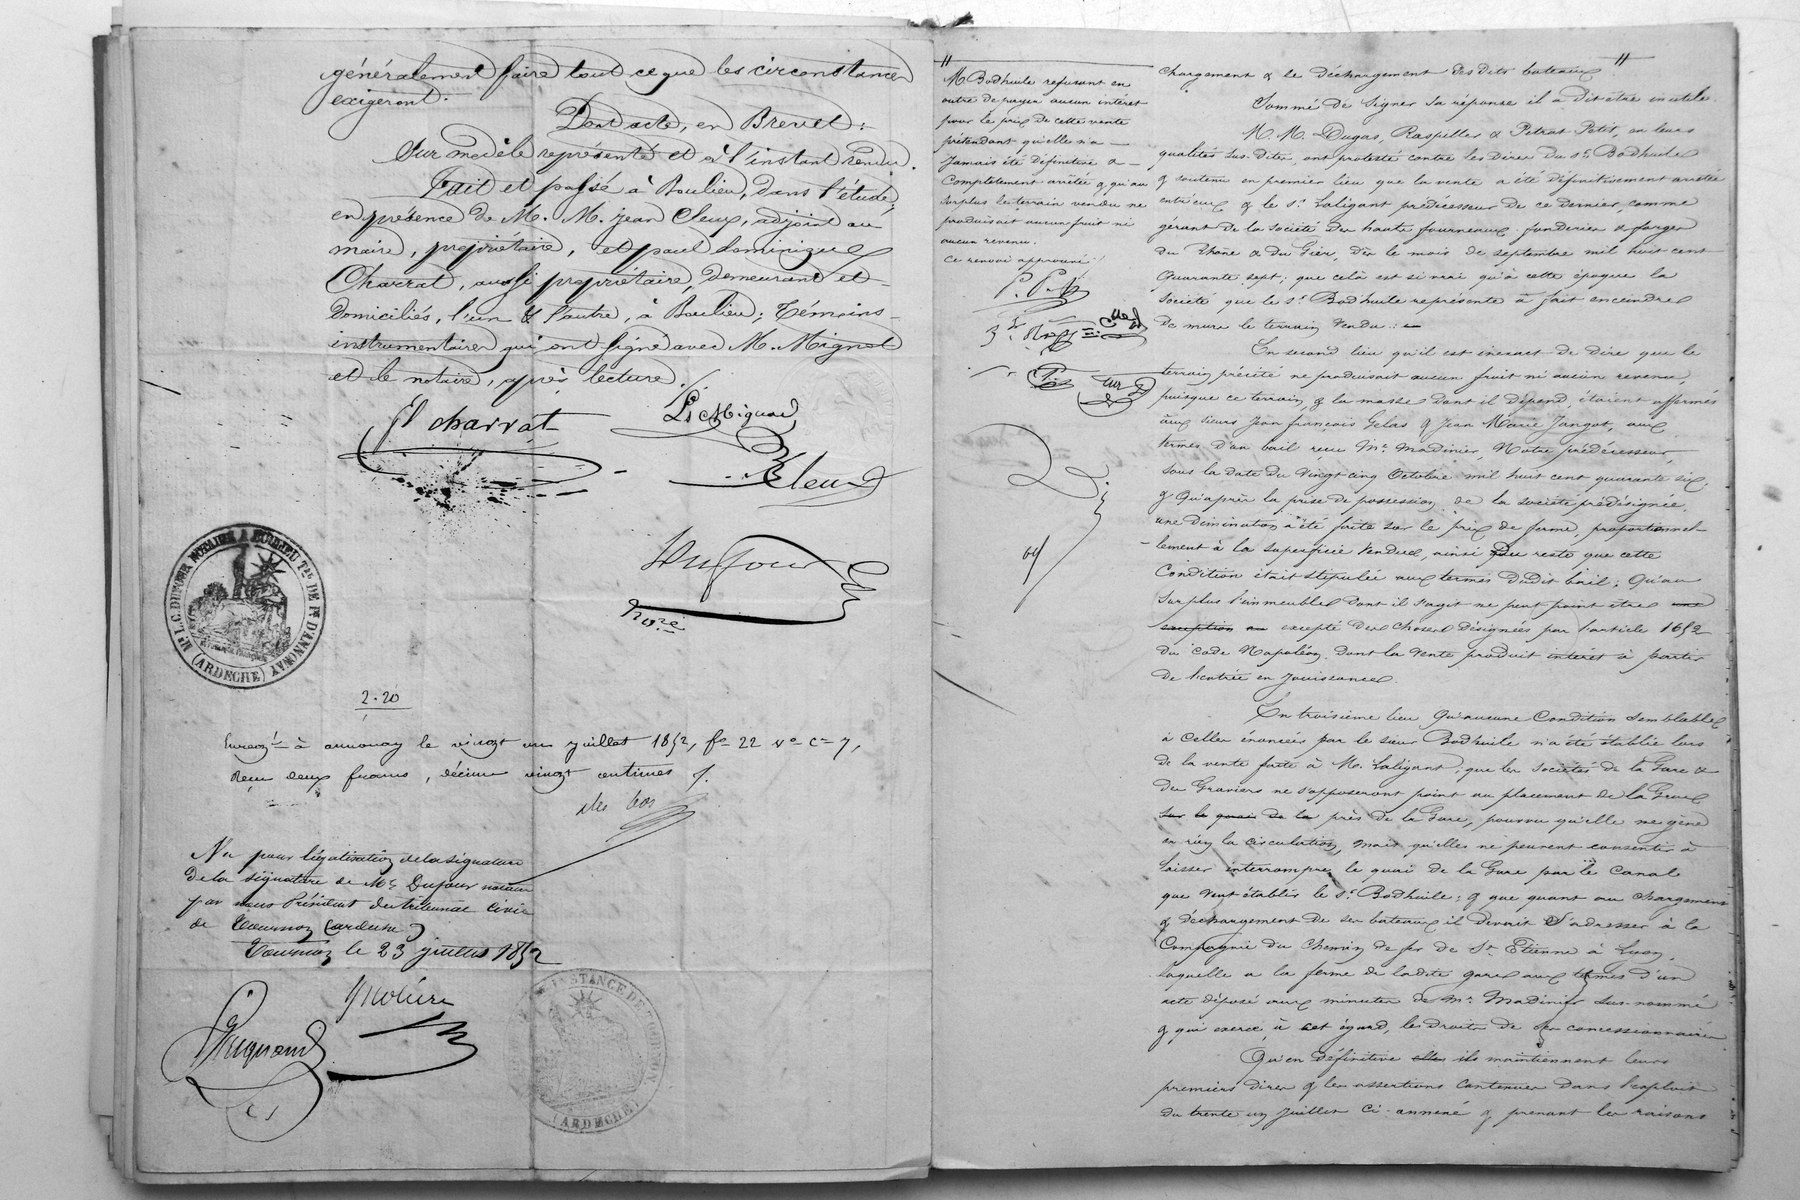 généralement faire tout ce que les circonstances
exigeront.
Dont acte, en Brevet:
Sur modèle représenté et à l'instant rendu.
Fait et passé à Boulieu, dans l'étude,
en présence de M. M. jean Cleux, adjoint au
maire, propriétaire, et paul dominique
Charrat, aussi propriétaire, demeurant et
domiciliés, l'un & l'autre, à Boulieu; Témoins
instrumentaires qui ont signé avec M. Mignot
et le notaire, après lecture.
charrat
Mignot
Cleux
Dufour
Nore
Me L.C. DUFOUR NOTAIRE A BOULIEU Tal DE Pce D'ANNONAY
(ARDECHE)
2.20
Enregé à annonay le vingt un juillet 1852, fo 22 vo Ce 7,
Reçu deux francs, décime vingt centimes
Vu pour légalisation de la signature
De la signature de Me Dufour notaire
par nous Président du tribunal civil
de Tournon (ardèche)
Tournon le 23 juillet 1852
INSTANCE DE TOURNON
(ARDECHE)
M Bodhuile refusant en
outre de payer aucun intérêt
pour le prix de cette vente
prétendant qu'elle n'a
Jamais été définitive &
Complètement arrêtée & qu'au
surplus le terrain vendu ne
produisait aucun fruit ni
aucun revenu.
Ce renvoi approuvé
chargement & le déchargement des dits bateaux
Sommé de signer sa réponse il a dit être inutile.
M. M. Dugas, Raspiller & Petrat Petit, en leurs
qualités sus-dites, ont protesté contre les dires du sr Bodhuile
& soutenu en premier lieu que la vente a été définitivement arrêtée
entr'eux & le sr Laligant prédécesseur de ce dernier, comme
gérant de la société des hauts fourneaux, fonderies & forges
du Rhône & du Gier, dès le mois de septembre mil huit cent
quarante sept; que celà est si vrai qu'à cette époque la
Société que le sr Bodhuile représente a fait enceindre
de murs le terrain vendu:
En second lieu qu'il est inexact de dire que le
terrain précité ne produisait aucun fruit ni aucun revenu,
puisque ce terrain, & la masse dont il dépend, étaient affermés
aux sieurs Jean françois Gelas & Jean Marie Jangot, aux
termes d'un bail reçu Me Madinier, Notre prédécesseur,
sous la date du Vingt cinq Octobre mil huit cent quarante six;
& Qu'après la prise de possession de la société prédésignée,
une diminution a été faite sur le prix de ferme, proportionnel-
-lement à la superficie Vendue, ainsi du reste que cette
Condition était stipulée aux termes dudit bail; Qu'au
surplus l'immeuble dont il s'agit ne peut point être une
exception au excepté des choses désignées par l'article 1652
du Code Napoléon, dont la vente produit intérêt à partir
de l'entrée en jouissance.
En troisième lieu, Qu'aucune Condition semblable
à celles énoncées par le sieur Bodhuile n'a été établie lors
de la vente faite à M. Laligant; que les sociétés de la Gare &
des Graviers ne s'opposeront point au placement de la Grue
sur le quai de la près de la Gare, pourvu qu'elle ne gêne
en rien la circulation, mais qu'elles ne peuvent consentir à
laisser interrompre le quai de la Gare par le Canal
que veut établir le sr Bodhuile; & que quant au chargement
& déchargement de ses bateaux il devait s'adresser à la
Compagnie du Chemin de fer de St Etienne à Lyon,
laquelle a la ferme de ladite gare aux termes d'un
acte déposé aux minutes de Me Madinier sus-nommé
& qui exerce, à cet égard, les droits de ses concessionnaires.
Qu'en définitive elles ils maintiennent leurs
premiers dires & les assertions contenues dans l'exploit
du trente un Juillet Ci-annexé & prenant les raisons